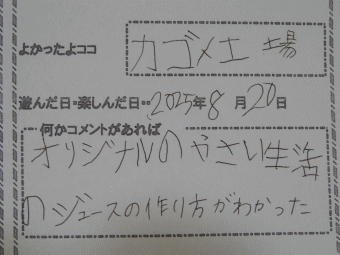 よかったよココ カゴメ工場
遊んだ日・楽しんだ日・・2025年8月20日
何かコメントがあれば
オリジナルのやさい生活
のジュースの作り方がわかった